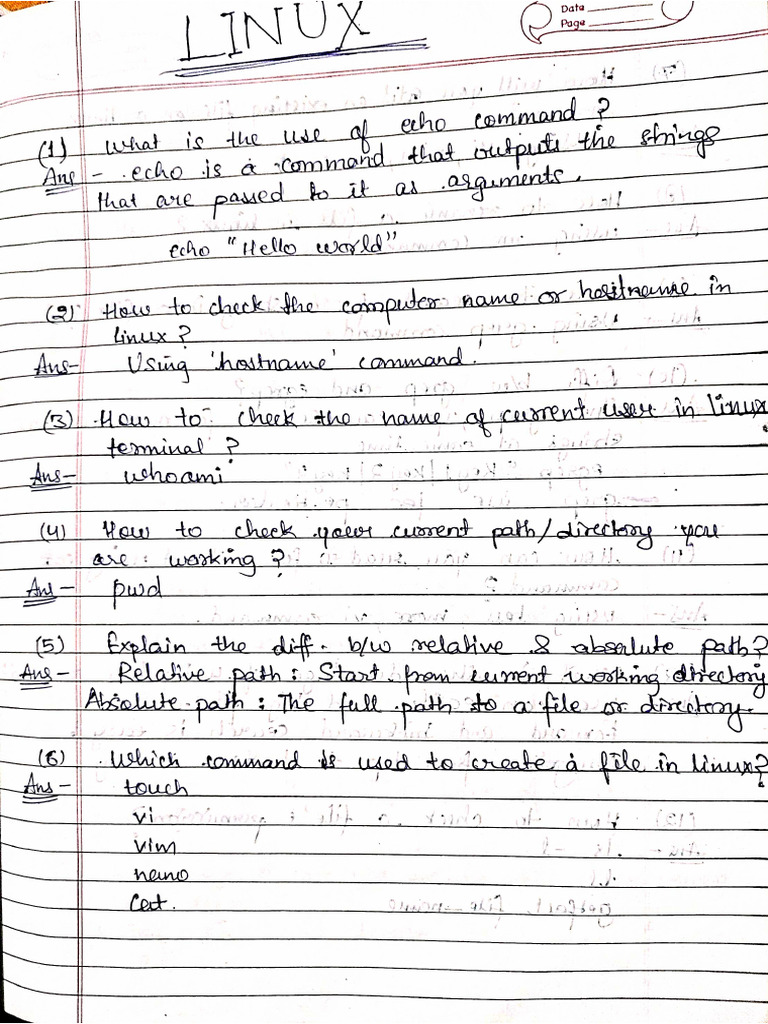 LINUX
Date
Page
(1) What is the use of echo command?
Ans - echo is a command that outputs the strings
that are passed to it as arguments.
echo "Hello world"
(2) How to check the computer name or hostname in
linux?
Ans- Using 'hostname' command.
(3) How to check the name of current user in linux
terminal?
Ans- whoami
(4) How to check your current path/directory you
are working?
Ans- pwd
(5) Explain the diff. b/w relative & absolute path?
Ans- Relative path: Start from current working directory
Absolute path: The full path to a file or directory.
(6) Which command is used to create a file in linux?
Ans- touch
vi
vim
nano
Cat.